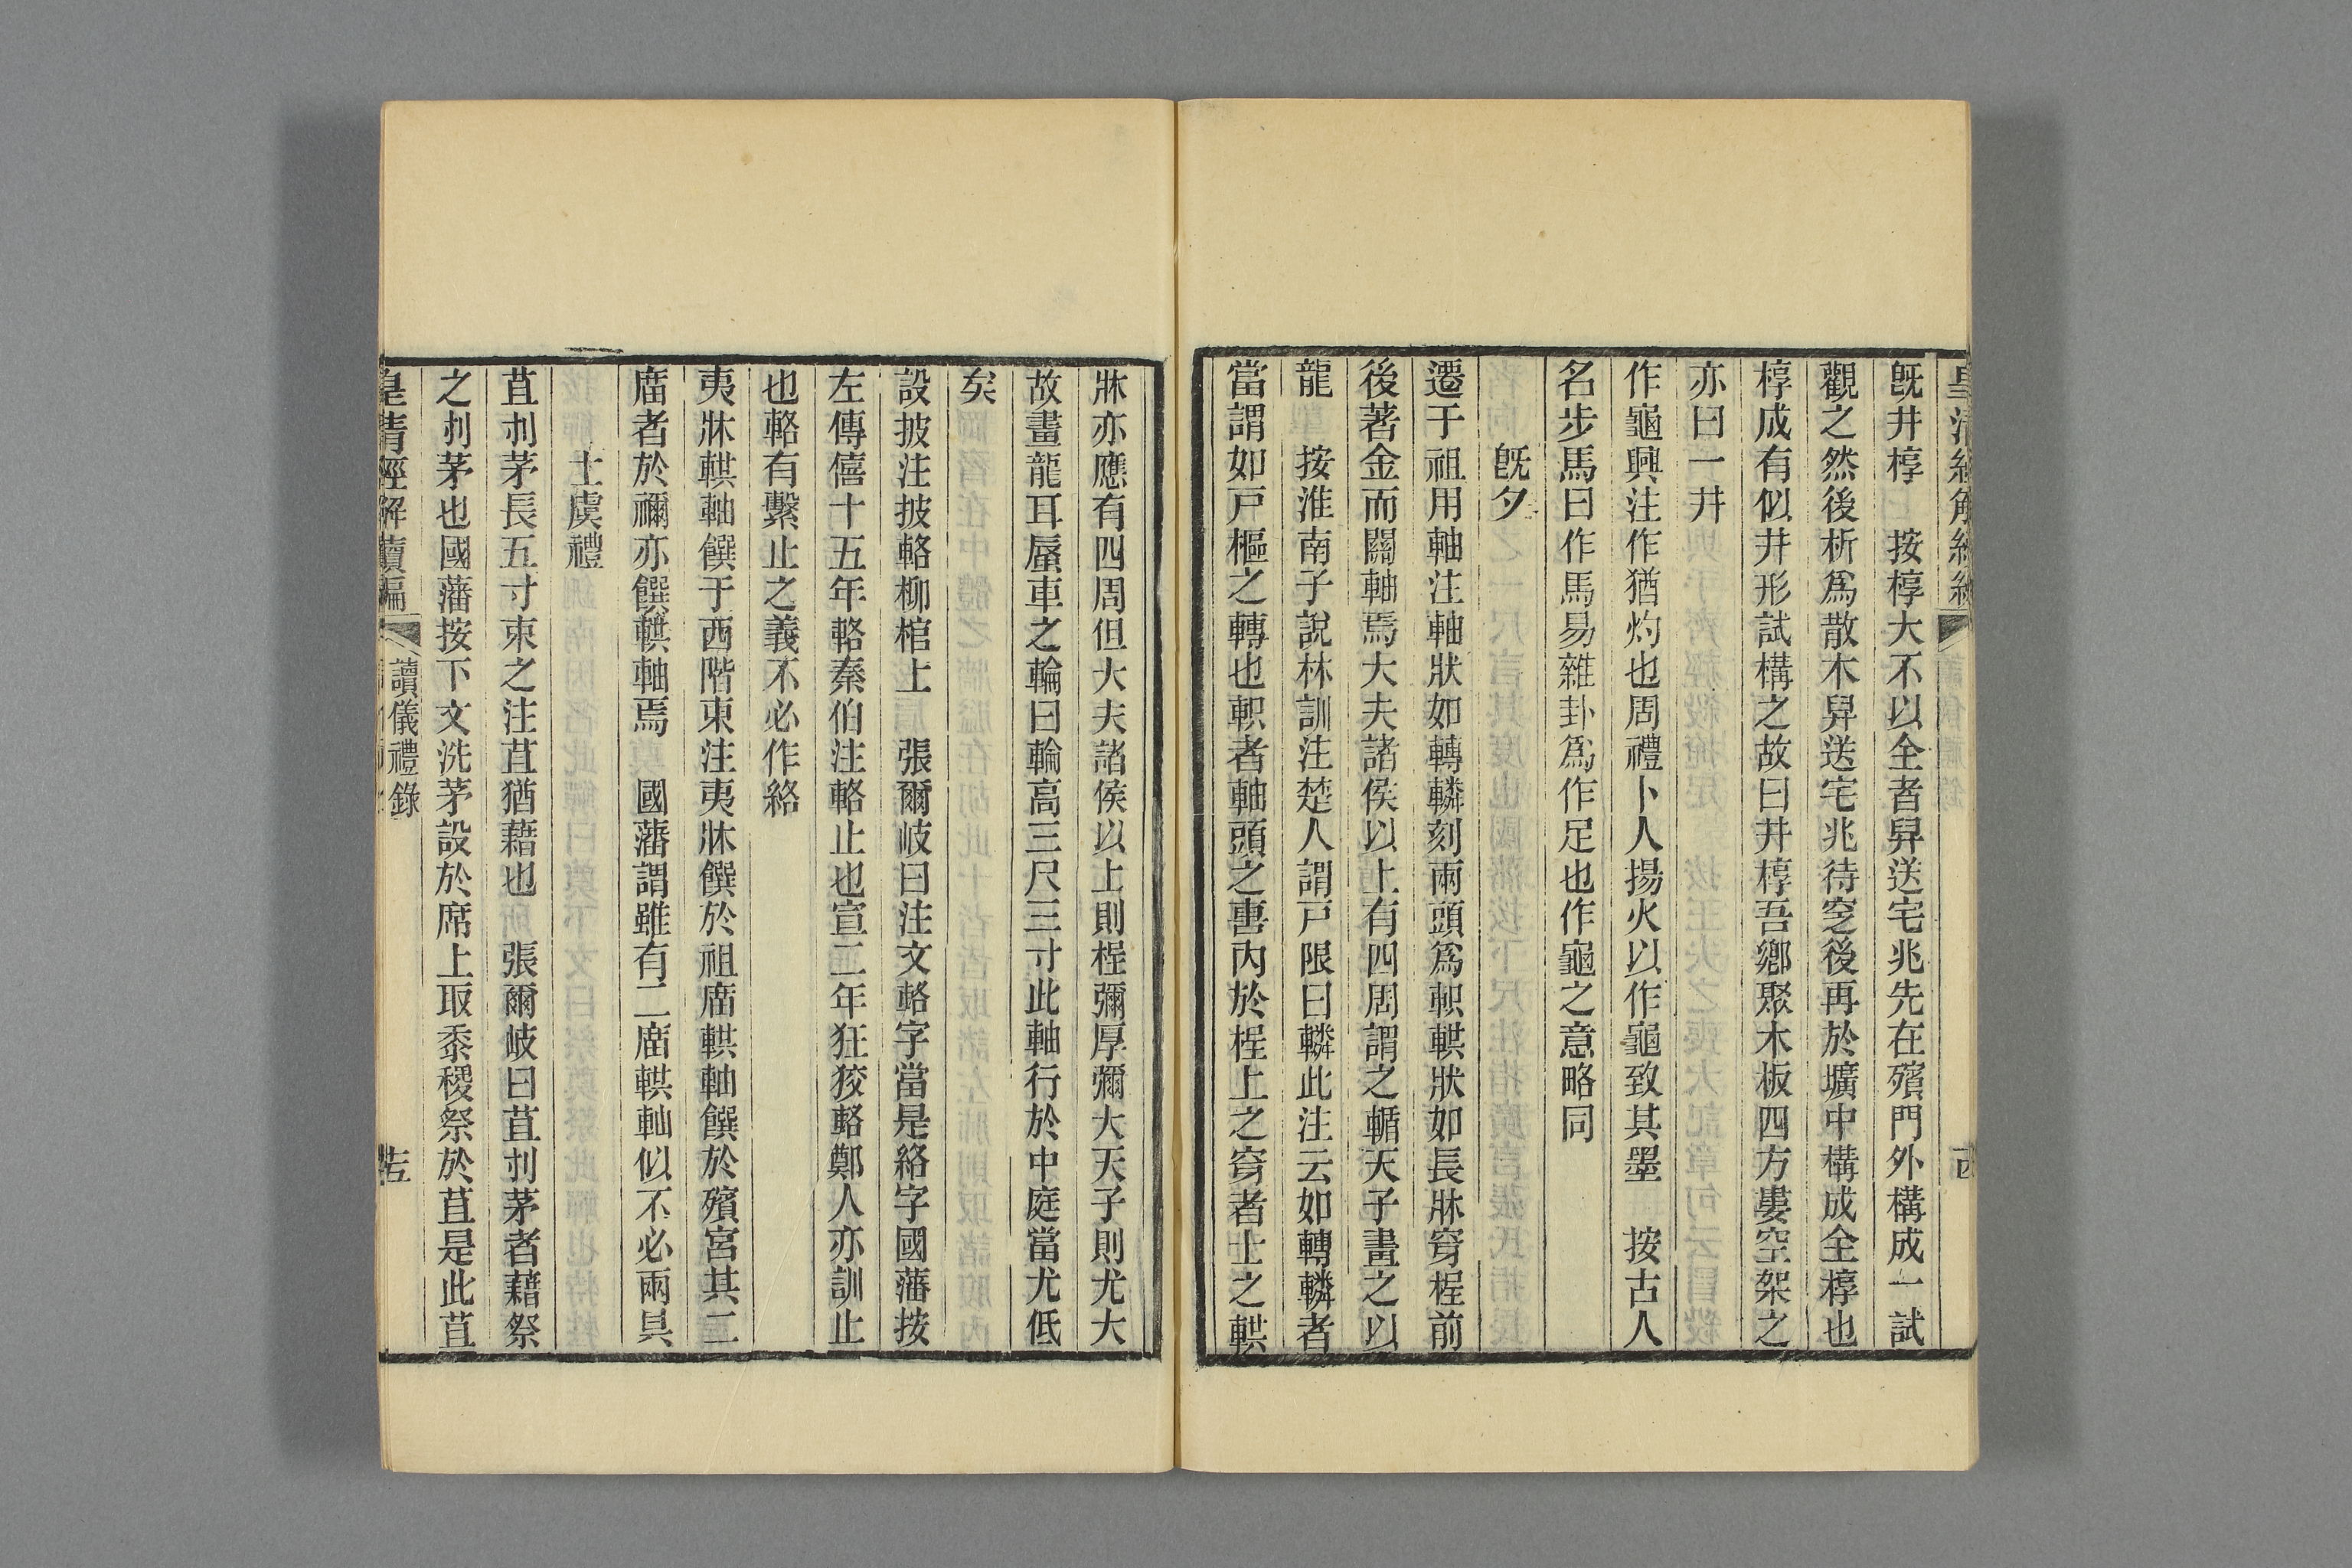 既井椁　按椁大不以全者舁送宅兆先在殯門外構成一試
觀之然後析爲散木舁送宅兆待窆後再於壙中構成全椁也
椁成有似井形試構之故曰井椁吾鄉聚木板四方婁空架之
亦曰一井
作龜興注作猶灼也周禮卜人揚火以作龜致其墨　按古人
名步馬曰作馬易雜卦爲作足也作龜之意略同
既夕
遷于祖用軸注軸狀如轉轔刻兩頭爲軹輁狀如長牀穿桯前
後著金而關軸焉大夫諸侯以上有四周謂之輴天子畫之以
龍　按淮南子說林訓注楚人謂戸限曰轔此注云如轉轔者
當謂如戸樞之轉也軹者軸頭之軎内於桯上之穿者士之輁
牀亦應有四周但大夫諸侯以上則桯彌厚彌大天子則尤大
故畫龍耳蜃車之輪曰輪高三尺三寸此軸行於中庭當尤低
矣
設披注披輅柳棺上　張爾岐曰注文輅字當是絡字國藩按
左傳僖十五年輅秦伯注輅止也宣二年狂狡輅鄭人亦訓止
也輅有繫止之義不必作絡
夷牀輁軸饌于西階東注夷牀饌於祖廟輁軸饌於殯宮其二
廟者於禰亦饌輁軸焉　國藩謂雖有二廟輁軸似不必兩具
士虞禮
苴刌茅長五寸束之注苴猶藉也　張爾岐曰苴刌茅者藉祭
之刌茅也國藩按下文洗茅設於席上取黍稷祭於苴是此苴
皇清經解續編
讀儀禮錄